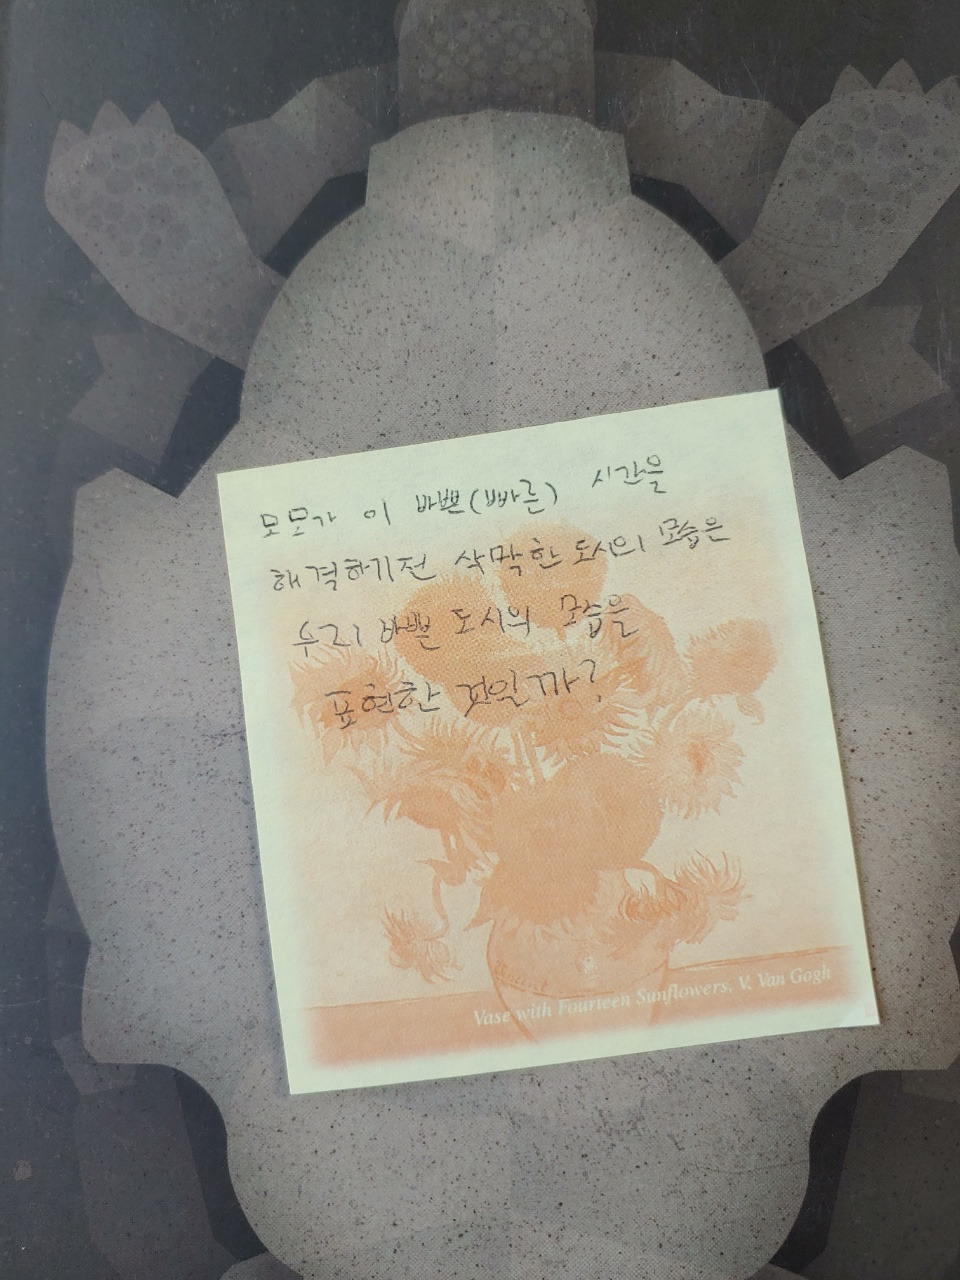 모모가 이 바쁜(빠른) 시간을
해결하기전 삭막한 도시의 모습은
우리 바쁜 도시의 모습을
표현한 것일까?
Vincent
Vase with Fourteen Sunflowers, V. Van Gogh